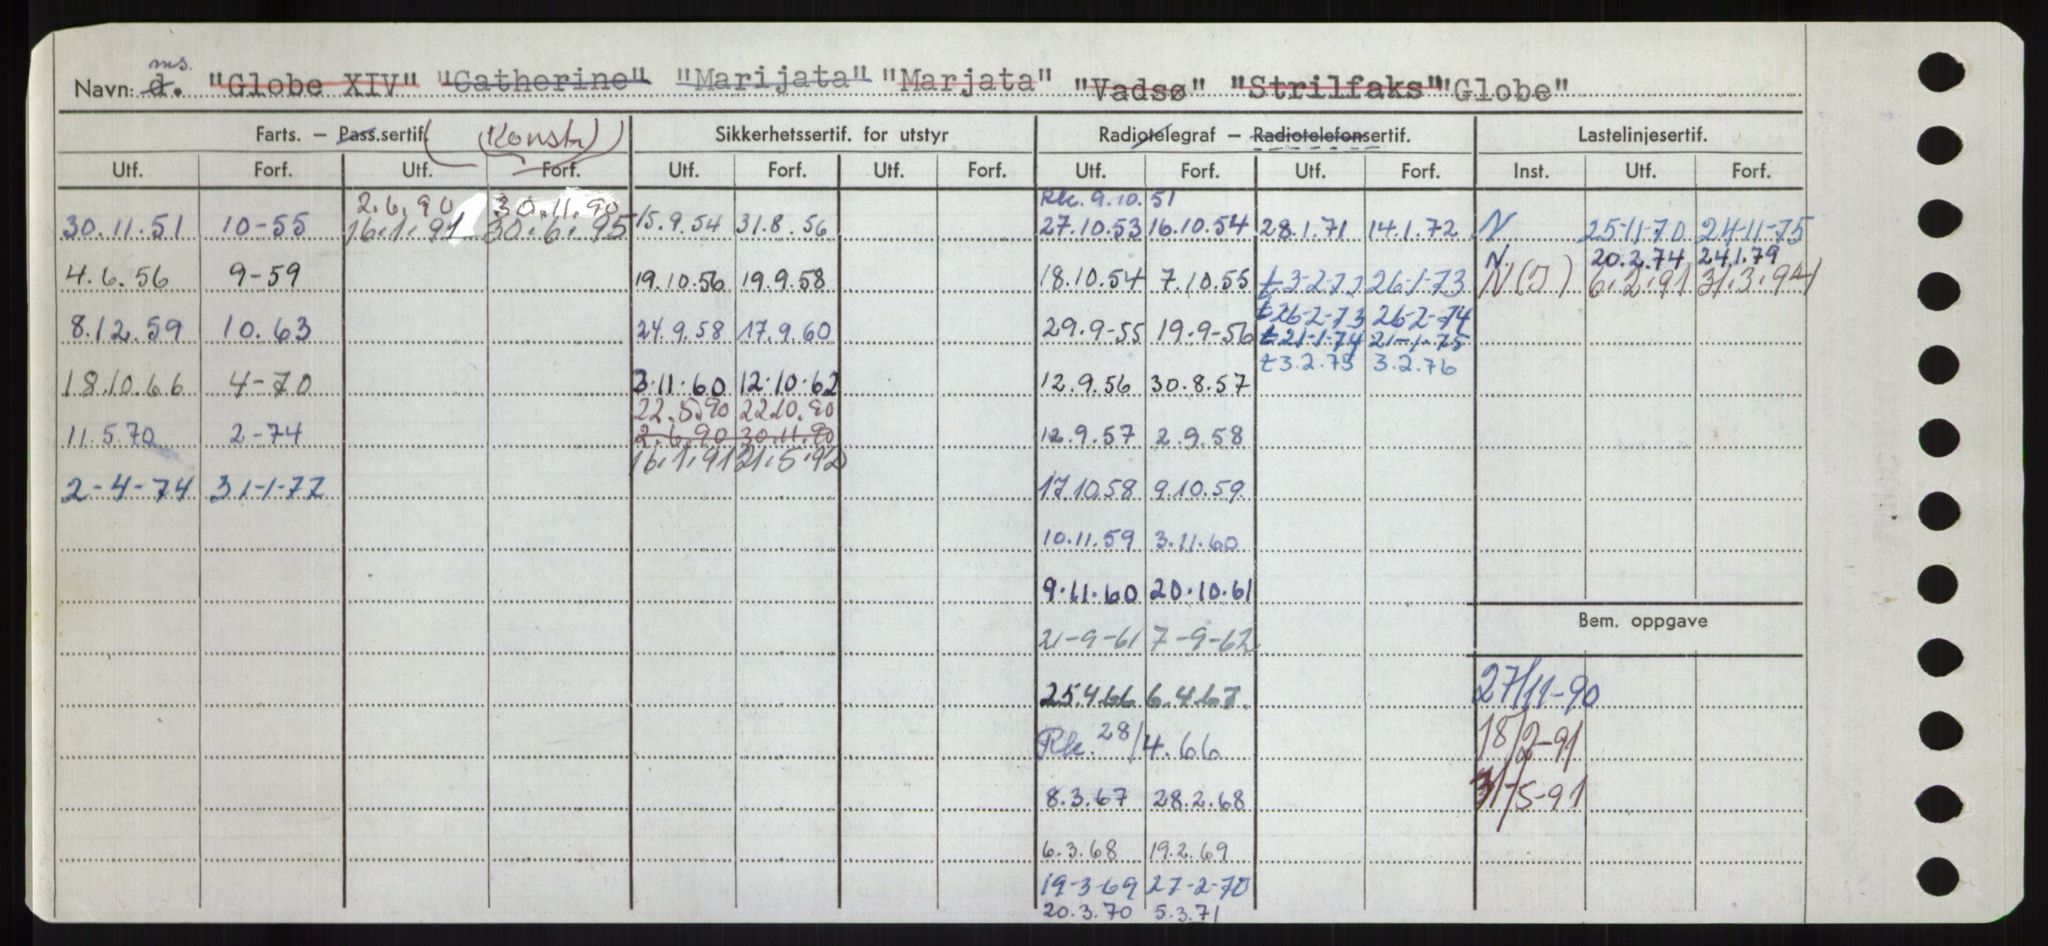 ms.
Navn: d. "Globe XIV" "Catherine" "Marijata" "Marjata" "Vadsø" "Strilfaks" "Globe"
Farts. — Pass.sertif. (Konstr) Sikkerhetssertif. for utstyr Radiotelegraf — Radiotelefonsertif. Lastelinjesertif.
Utf. Forf. Utf. Forf. Utf. Forf. Utf. Forf. Utf. Forf. Utf. Forf. Inst. Utf. Forf.
2.6.90 30.11.90 Rk. 9.10.51
30.11.51 10-55 16.1.91 30.6.95 15.9.54 31.8.56 27.10.53 16.10.54 28.1.71 14.1.72 N 25-11-70 24-11-75
N. 20.2.74 24.1.79
4.6.56 9-59 19.10.56 19.9.58 18.10.54 7.10.55 t 3-2-72 26-1-73 N(I) 6.2.91 31.3.94
t 26-2-73 26-2-74
8.12.59 10.63 24.9.58 17.9.60 29.9-55 19.9-56 t 21-1-74 21-1-75
t 3.2.75 3.2.76
18.10.66 4-70 3.11.60 12.10.62 12.9.56 30.8.57
22.5.90 22.10.90
11.5.70 2-74 2.6.90 30.11.90 12.9.57 2.9.58
16.1.91 31.5.92
2-4-74 31-1-77 17.10.58 9.10.59
10.11.59 3.11.60
9.11.60 20.10.61
Bem. oppgave
21-9-61 7-9-62
25.4.66 6.4.67. 27/11-90
Rk. 28/4.66 18/2-91
8.3.67 28.2.68 31/5-91
6.3.68 19.2.69
19-3-69 27-2-70
20.3.70 5.3.71